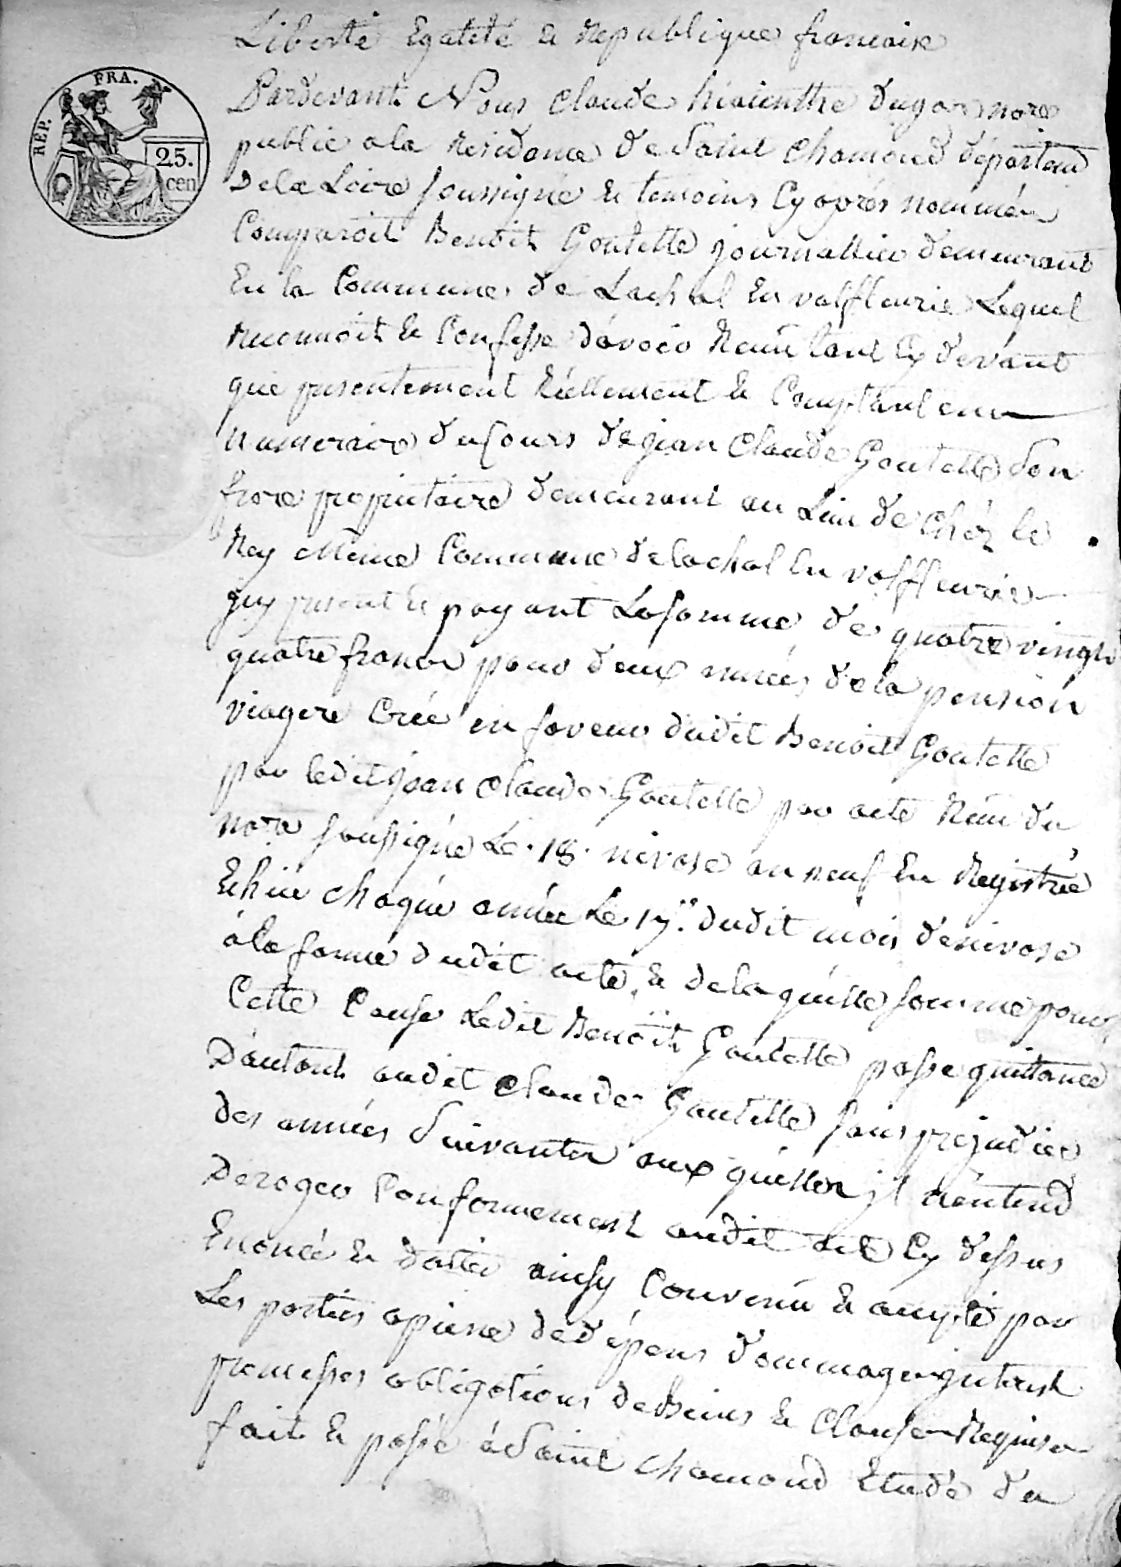 Liberté Egalité & Republique francaise
REP. FRA.
25.
cen
Pardevant Nous Claude hiacinthe dugas nore
public a la residance de Saint Chamond départemt
de la Loire soussigné & temoins Cy aprés nommés
Comparoit Benoit Goutelle journallier demeurant
En la Commune de Lachal En valfleurie Lequel
reconnoit & Confesse d'avoir Recu tant Cy devant
que presentement Réellement & Comptant en
numeraire du Cours de jean Claude Goutelle Son
frere proprietaire demeurant au Lieu de Chéz le
Rey même Commune de lachal En valfleurie
jcy present & payant La somme de quatre vingt
quatre francs pour deux années de la pension
viagere Créé en faveur dudit Benoit Goutelle
par ledit jean Claude Goutelle par acte Recu du
nore soussigné Le 18 nivose an neuf En Registrée
Echüe chaque année Le 17. dudit mois de nivose
á la forme dudit acte, & de laquelle somme pour
Cette Cause Ledit Benoit Goutelle passe quittance
D'autant audit Claude Goutelle sans prejudice
des années Suivantes aux quelles jl n'entend
Deroger Conformement audit acte Cy dessus
Enoncé & datté ainsy Convenu & accepté par
Les parties apeine de dépens dommages jnterest
promesses obligations de Biens & Clauses Requises
fait & passé á Saint Chamond Etude du